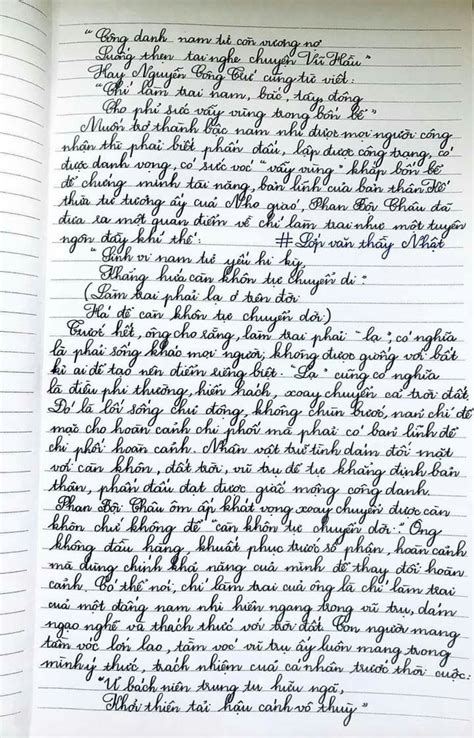 "Công danh nam tử còn vương nợ
Luống thẹn tai nghe chuyện Vũ Hầu"
Hay Nguyễn Công Trứ cũng từ viết:
"Chí làm trai nam, bắc, tây, đông
Cho phỉ sức vẫy vùng trong bốn bể"
Muốn trở thành bậc nam nhi được mọi người công
nhận thì phải biết phấn đấu, lập được công trạng, có
được danh vọng, có sức vóc "vẫy vùng" khắp bốn bể
để chứng minh tài năng, bản lĩnh của bản thân. Kế
thừa tư tương ấy của Nho giáo, Phan Bội Châu đã
đưa ra một quan điểm về chí làm trai như một tuyên
ngôn đầy khí thế: #Lớp văn thầy Nhật
"Sinh vi nam tử yếu hi kỳ,
Khẳng hứa càn khôn tự chuyển di".
(Làm trai phải lạ ở trên đời
Há để càn khôn tự chuyển dời.)
Trước hết, ông cho rằng, làm trai phải "lạ"; có nghĩa
là phải sống khác mọi người; không được giống với bất
kì ai để tạo nên điểm riêng biệt. "Lạ" cũng có nghĩa
là điều phi thường, hiển hách, xoay chuyển cả trời đất.
Đó là lối sống chủ động, không chùn bước, nản chí để
mặc cho hoàn cảnh chi phối mà phải có bản lĩnh để
chi phối hoàn cảnh. Nhân vật trữ tình dám đối mặt
với càn khôn, đất trời, vũ trụ để tự khẳng định bản
thân, phấn đấu đạt được giấc mộng công danh.
Phan Bội Châu ôm ấp khát vọng xoay chuyển được càn
khôn chứ không để "càn khôn tự chuyển dời". Ông
không đầu hàng, khuất phục trước số phận, hoàn cảnh
mà dùng chính khả năng của mình để thay đổi hoàn
cảnh. Có thể nói, chí làm trai của ông là chí làm trai
của một đấng nam nhi hiên ngang trong vũ trụ, dám
ngạo nghễ và thách thức với trời đất. Con người mang
tầm vóc lớn lao, tầm vóc vũ trụ ấy luôn mang trong
mình ý thức, trách nhiệm của cá nhân trước thời cuộc:
"Ư bách niên trung tu hữu ngã,
Khởi thiên tải hậu cánh vô thuỳ"